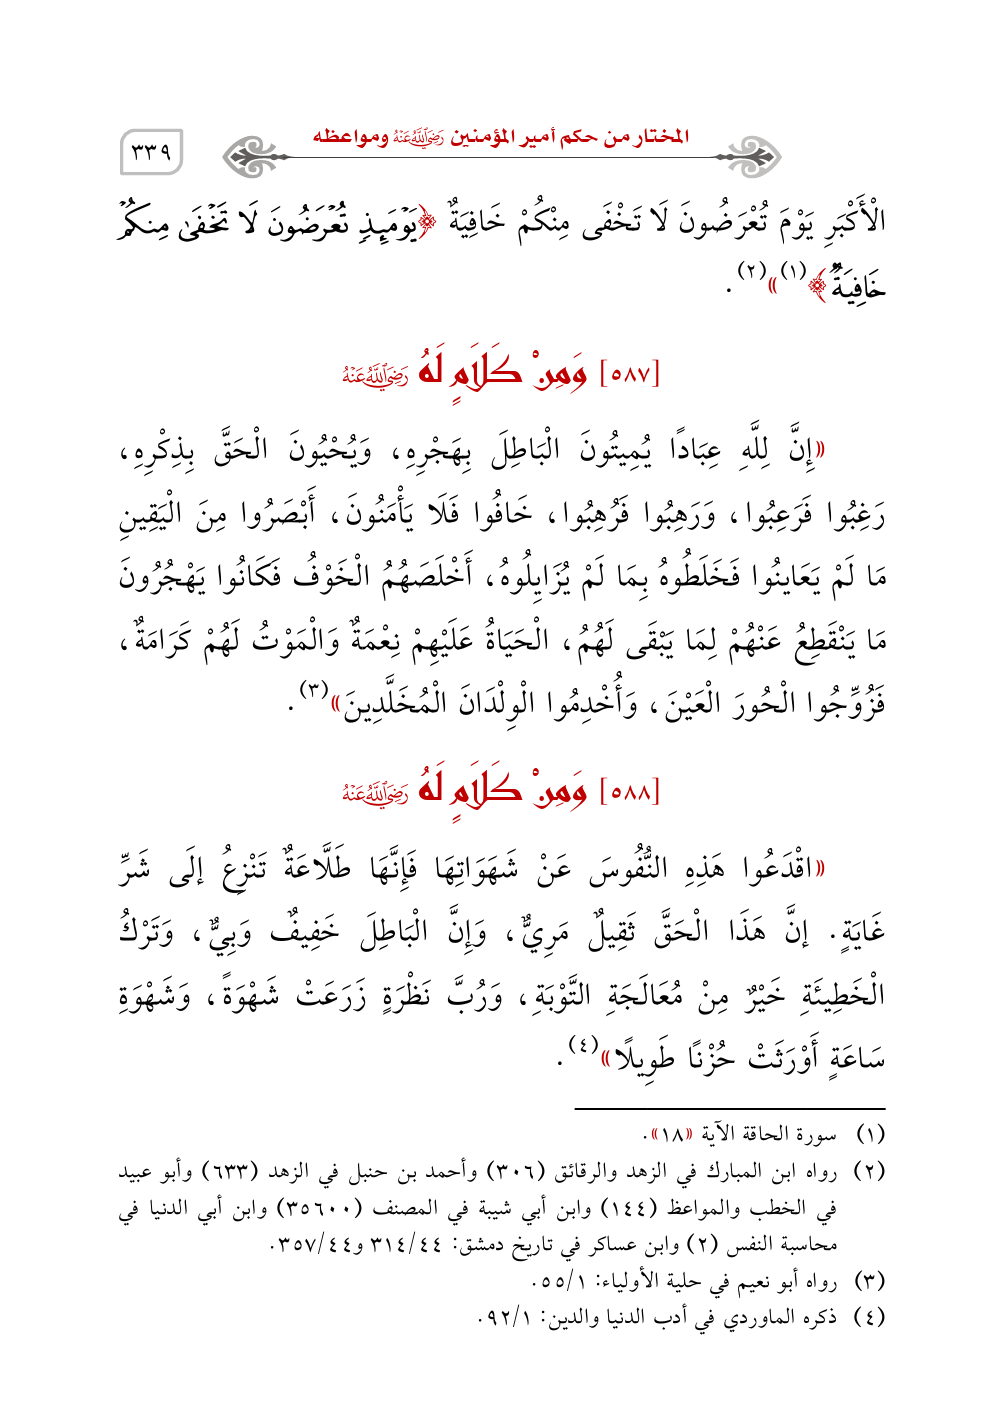 المختار من حكم أمير المؤمنين رَضِيَ اللَّهُ عَنْهُ ومواعظه
٣٣٩
الْأَكْبَرِ يَوْمَ تُعْرَضُونَ لَا تَخْفَى مِنْكُمْ خَافِيَةٌ ﴿يَوْمَئِذٍ تُعْرَضُونَ لَا تَخْفَىٰ مِنكُمْ
خَافِيَةٌ﴾(١)»(٢).
[٥٨٧] وَمِنْ كَلَامٍ لَهُ رَضِيَ اللَّهُ عَنْهُ
«إِنَّ لِلَّهِ عِبَادًا يُمِيتُونَ الْبَاطِلَ بِهَجْرِهِ، وَيُحْيُونَ الْحَقَّ بِذِكْرِهِ،
رَغِبُوا فَرَعِبُوا، وَرَهِبُوا فَرُهِبُوا، خَافُوا فَلَا يَأْمَنُونَ، أَبْصَرُوا مِنَ الْيَقِينِ
مَا لَمْ يَعَاينُوا فَخَلَطُوهُ بِمَا لَمْ يُزَايِلُوهُ، أَخْلَصَهُمُ الْخَوْفُ فَكَانُوا يَهْجُرُونَ
مَا يَنْقَطِعُ عَنْهُمْ لِمَا يَبْقَى لَهُمُ، الْحَيَاةُ عَلَيْهِمْ نِعْمَةٌ وَالْمَوْتُ لَهُمْ كَرَامَةٌ،
فَزُوِّجُوا الْحُورَ الْعَيْنَ، وَأُخْدِمُوا الْوِلْدَانَ الْمُخَلَّدِينَ»(٣).
[٥٨٨] وَمِنْ كَلَامٍ لَهُ رَضِيَ اللَّهُ عَنْهُ
«اقْدَعُوا هَذِهِ النُّفُوسَ عَنْ شَهَوَاتِهَا فَإِنَّهَا طَلَّاعَةٌ تَنْزِعُ إلَى شَرِّ
غَايَةٍ. إنَّ هَذَا الْحَقَّ ثَقِيلٌ مَرِيٌّ، وَإِنَّ الْبَاطِلَ خَفِيفٌ وَبِيٌّ، وَتَرْكُ
الْخَطِيئَةِ خَيْرٌ مِنْ مُعَالَجَةِ التَّوْبَةِ، وَرُبَّ نَظْرَةٍ زَرَعَتْ شَهْوَةً، وَشَهْوَةِ
سَاعَةٍ أَوْرَثَتْ حُزْنًا طَوِيلًا»(٤).
(١) سورة الحاقة الآية «١٨».
(٢) رواه ابن المبارك في الزهد والرقائق (٣٠٦) وأحمد بن حنبل في الزهد (٦٣٣) وأبو عبيد
في الخطب والمواعظ (١٤٤) وابن أبي شيبة في المصنف (٣٥٦٠٠) وابن أبي الدنيا في
محاسبة النفس (٢) وابن عساكر في تاريخ دمشق: ٣١٤/٤٤ و٣٥٧/٤٤.
(٣) رواه أبو نعيم في حلية الأولياء: ٥٥/١.
(٤) ذكره الماوردي في أدب الدنيا والدين: ٩٢/١.